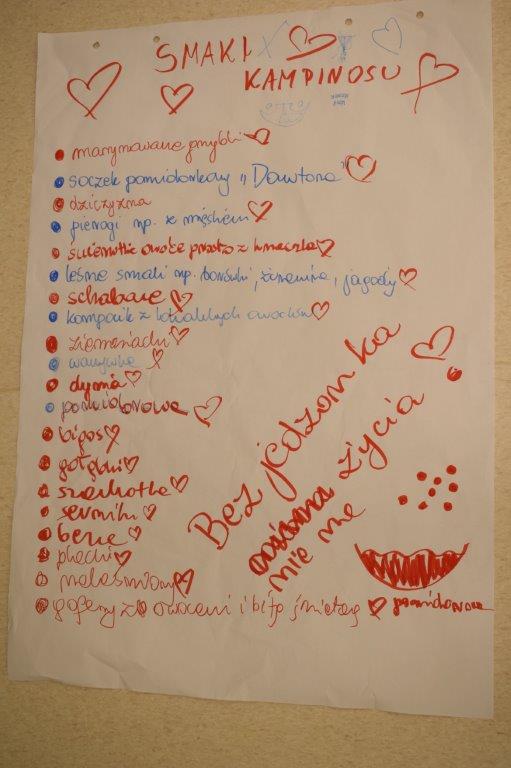 SMAKI
KAMPINOSU
marynowane grzybki
soczek pomidorkowy "Dawtona"
dziczyzna
pierogi np. z mięskiem
świeżutkie owoce prosto z krzaczka
leśne smaki np. borówki, żurawina, jagody
schabowe
kompocik z lokalnych owoców
ziemniaczki
warzywka
dynia
pomidorowa
bigos
gołąbki
szarlotka
serniki
beza
placki
naleśniory
gofery z owocami i bitą śmietaną
pomidorowa
Bez jedzonka
życia
nie ma